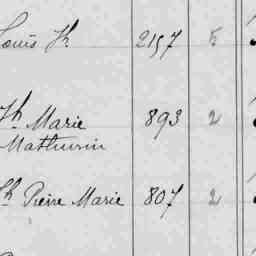 Louis Jh 2157 5
Jh Marie 893 2
Mathurin
Jh Pierre Marie 807 2